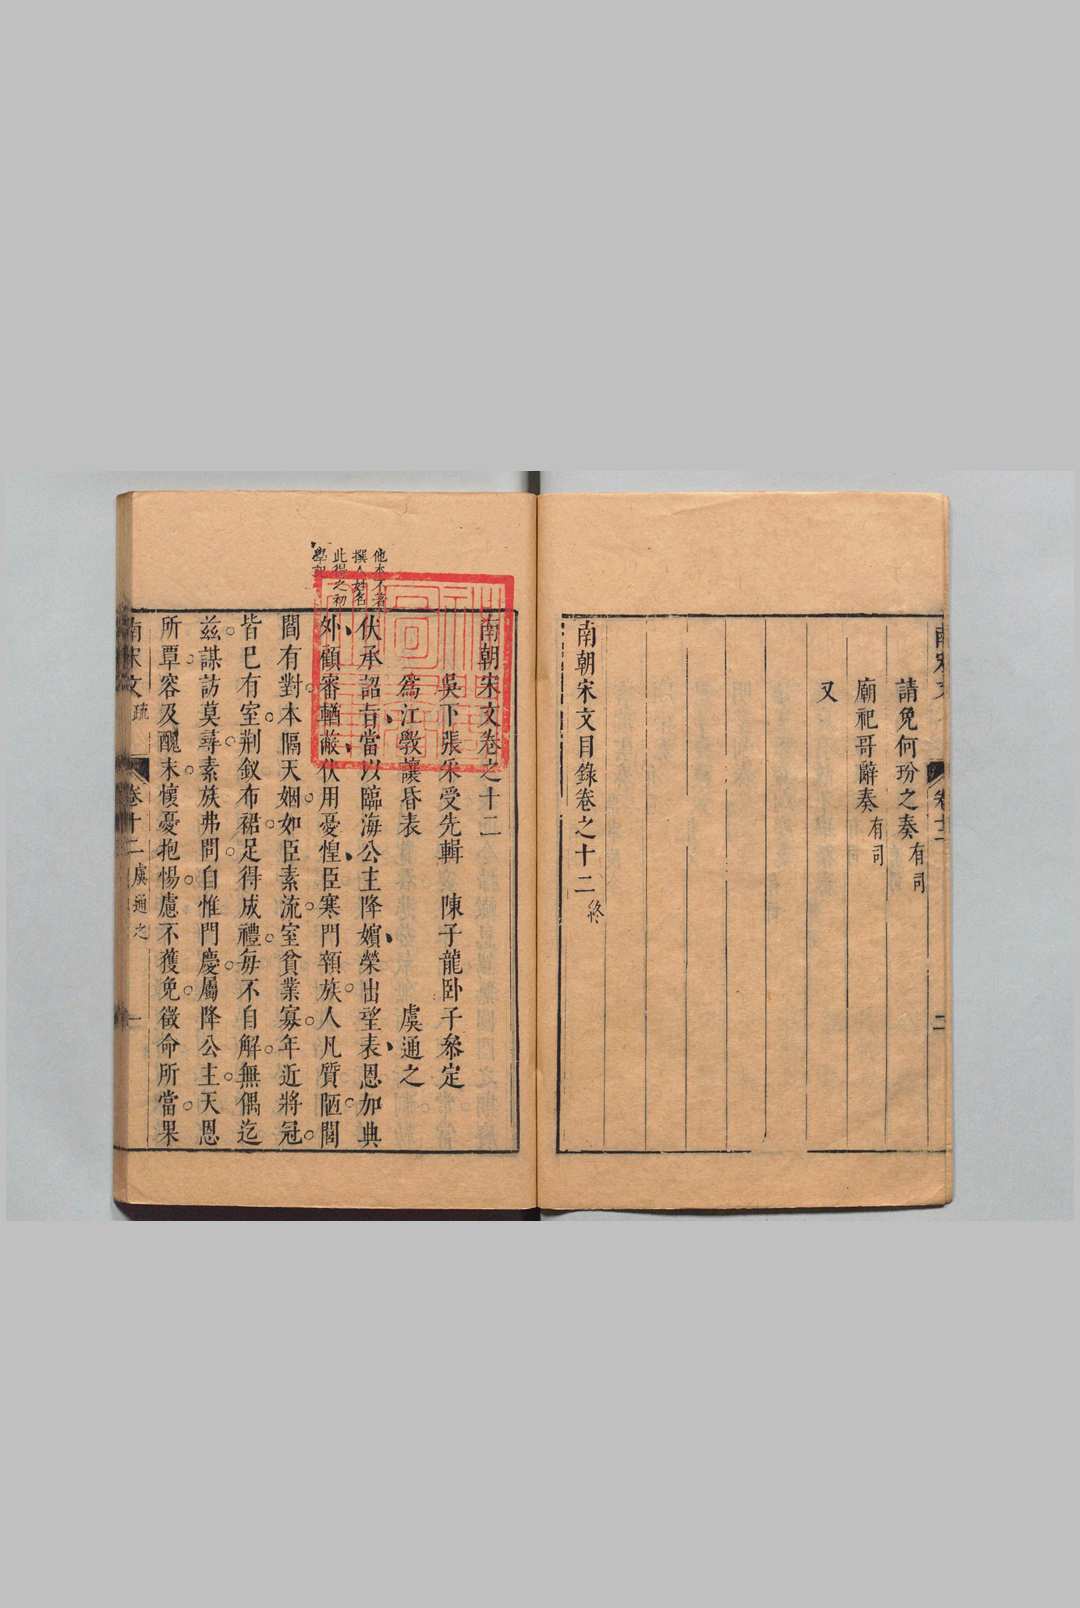 請免何玢之奏有司
廟祀哥辭奏有司
又
南朝宋文目錄卷之十二終
南朝宋文卷之十二
吳下張采受先輯 陳子龍卧子叅定
爲江斆讓昏表 虞通之
伏承詔旨當以臨海公主降嬪榮出望表恩加典
外顧審輶蔽伏用憂惶臣寒門領族人凡質陋閭
閻有對本隔天姻如臣素流室貧業寡年近將冠
皆巳有室荆釵布裙足得成禮每不自解無偶迄
兹謀訪莫尋素族弗問自惟門慶屬降公主天恩
所覃容及醜末懷憂抱惕慮不獲免徵命所當果
他本不著
撰人姓名
此得之初
南宋文 疏 卷十二 虞通之 一